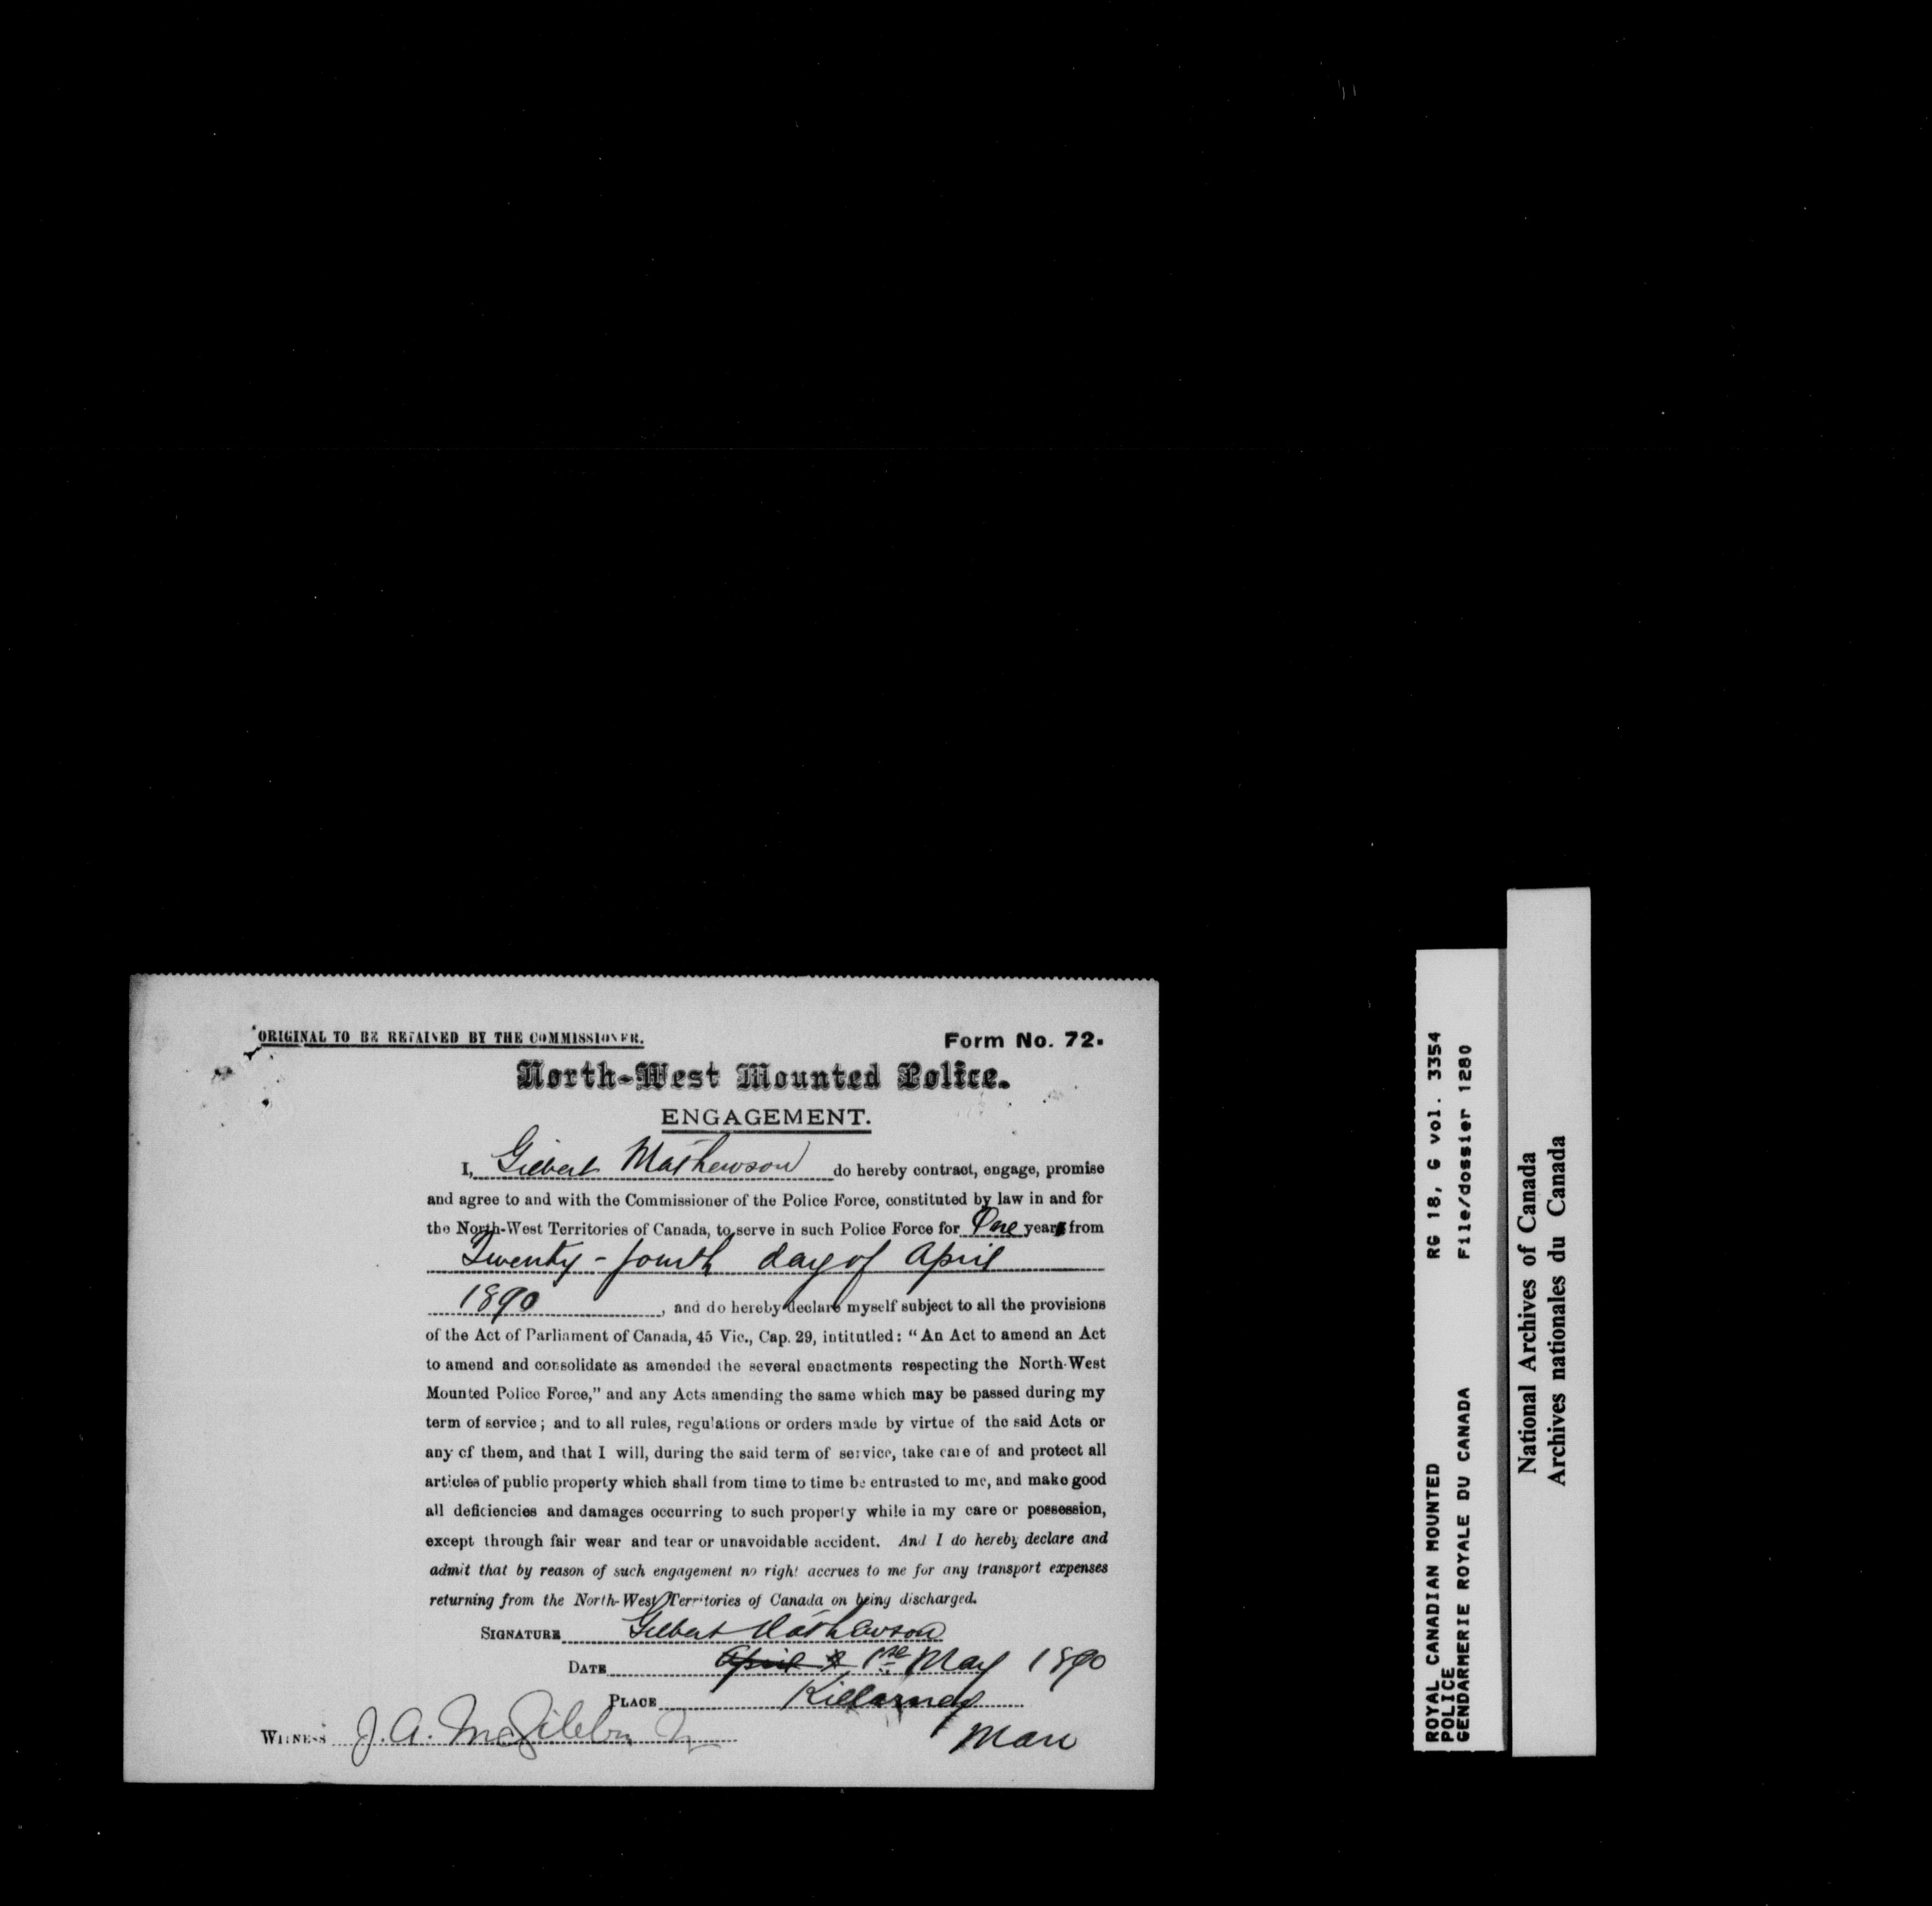 ORIGINAL TO BE RETAINED BY THE COMMISSIONER.
Form No. 72.
North-West Mounted Police.
ENGAGEMENT.
I, Gilbert Mathewson do hereby contract, engage, promise
and agree to and with the Commissioner of the Police Force, constituted by law in and for
the North-West Territories of Canada, to serve in such Police Force for One years from
Twenty-fourth day of April
1890, and do hereby declare myself subject to all the provisions
of the Act of Parliament of Canada, 45 Vic., Cap. 29, intitutled: “An Act to amend an Act
to amend and consolidate as amended the several enactments respecting the North-West
Mounted Police Force,” and any Acts amending the same which may be passed during my
term of service; and to all rules, regulations or orders made by virtue of the said Acts or
any of them, and that I will, during the said term of service, take care of and protect all
articles of public property which shall from time to time be entrusted to me, and make good
all deficiencies and damages occurring to such property while in my care or possession,
except through fair wear and tear or unavoidable accident. And I do hereby declare and
admit that by reason of such engagement no right accrues to me for any transport expenses
returning from the North-West Territories of Canada on being discharged.
SIGNATURE Gilbert Mathewson
DATE April 1st May 1890
PLACE Killarney
Man
WITNESS J. A. McGibbon
ROYAL CANADIAN MOUNTED RG 18, G vol. 3354
POLICE
GENDARMERIE ROYALE DU CANADA File/dossier 1280
National Archives of Canada
Archives nationales du Canada